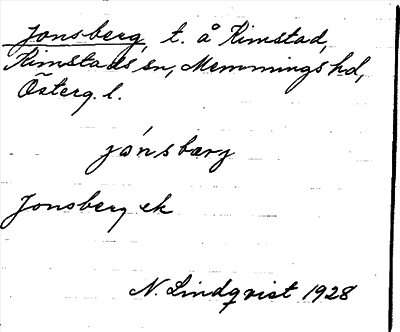 Jonsberg, t. å Kimstad,
Kimstads sn, Memmings hd,
Österg. l.
jónsbarj
Jonsberg ek
N. Lindqvist 1928